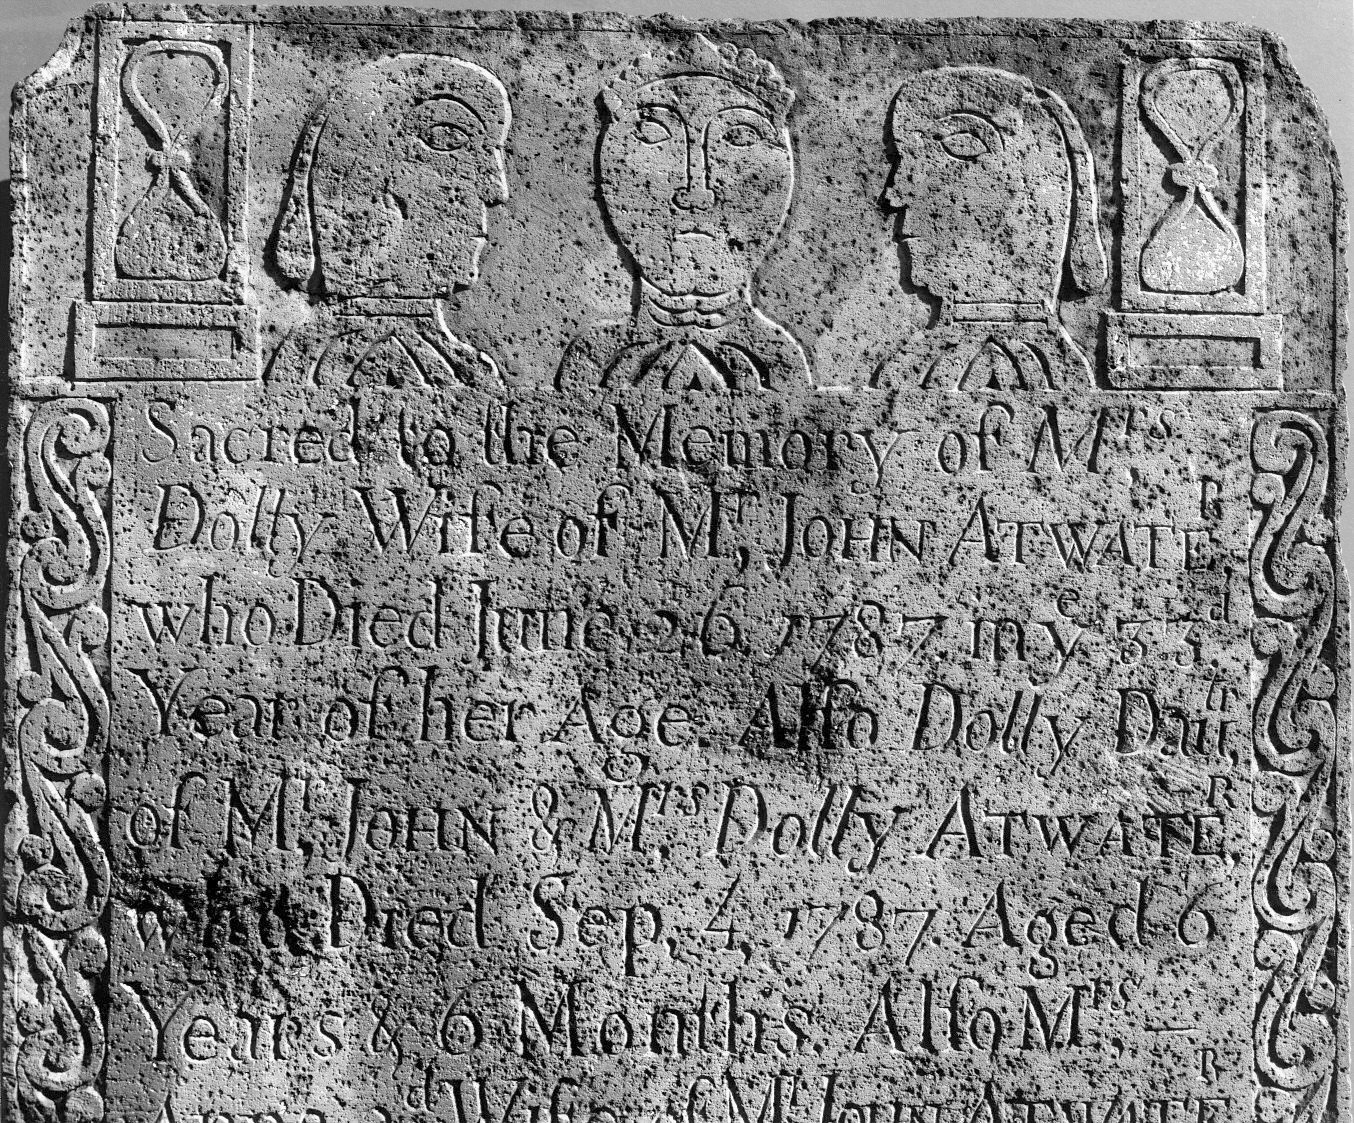 Sacred to the Memory of Mrs
Dolly Wife of Mr, JOHN ATWATER
who Died June 26 1787 in ye 33d
Year of her Age. Alſo Dolly Dautr,
of Mr, JOHN & Mrs Dolly ATWATER
who Died Sep, 4, 1787 Aged 6
Years & 6 Months, Alſo Mrs, —
2d Wife of Mr JOHN ATWATER